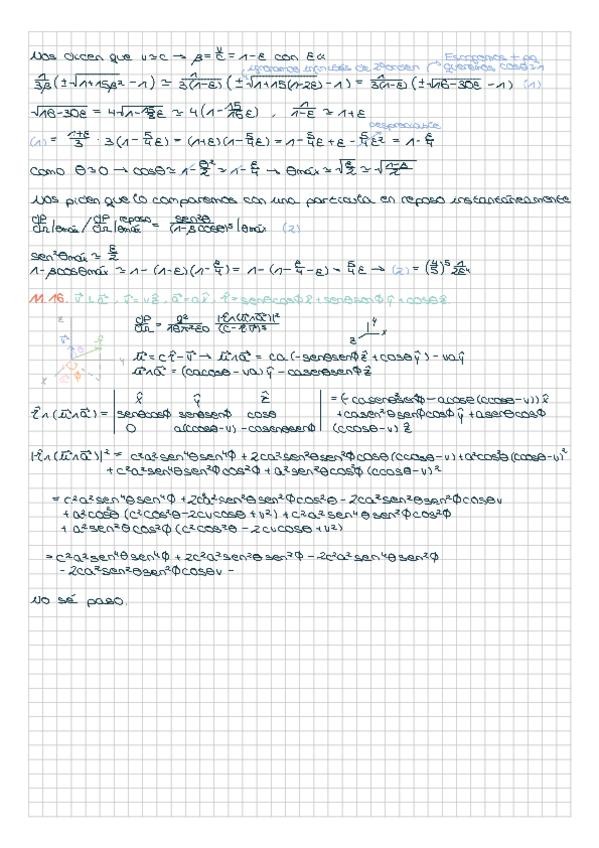 Nos dicen que v≃c → β = v/c = 1-ε con ε≪
ignoramos términos de 2º orden
Escogemos + pq queremos cosθ≃1
1/3β (±√(1+15β²) - 1) ≃ 1/3(1-ε) (±√(1+15(1-2ε)) - 1) = 1/3(1-ε) (±√(16-30ε) - 1) (1)
√(16-30ε) = 4√(1-15/8 ε) ≃ 4(1-15/16 ε) , 1/(1-ε) ≃ 1+ε
despreciable
(1) = (1+ε)/3 · 3(1-5/4 ε) = (1+ε)(1-5/4 ε) = 1-5/4 ε + ε - 5/4 ε² = 1-ε/4
Como θ≃0 → cosθ ≃ 1-θ²/2 ≃ 1-ε/4 → θmáx ≃ √(ε/2) ≃ √((1-β)/2)
Nos piden que lo comparemos con una partícula en reposo instantáneamente
dP/dΩ|θmáx / dP/dΩ|θmáx reposo = sen²θ/(1-βcosθ)⁵|θmáx (2)
sen²θmáx ≃ ε/2
1-βcosθmáx ≃ 1-(1-ε)(1-ε/4) = 1-(1-ε/4-ε) = 5/4 ε → (2) = (4/5)⁵ 1/2ε⁴
M.16. v⃗⊥a⃗ , v⃗=vẑ , a⃗=ax̂ , r̂=senθcosϕx̂+senθsenϕŷ+cosθẑ
dP/dΩ = q²/16π²ε0 |r̂∧(u⃗∧a⃗)|²/(c-r̂·v⃗)⁵
u⃗=cr̂-v⃗ → u⃗∧a⃗ = ca(-senθsenϕẑ+cosθŷ)-vaŷ
u⃗∧a⃗ = (cacosθ-va)ŷ-casenθsenϕẑ
x̂ ŷ ẑ
r̂∧(u⃗∧a⃗) = | senθcosϕ senθsenϕ cosθ | = (-casen²θsen²ϕ-acosθ(ccosθ-v))x̂
0 a(ccosθ-v) -casenθsenϕ +casen²θsenϕcosϕŷ+asenθcosϕ
(ccosθ-v)ẑ
|r̂∧(u⃗∧a⃗)|² = c²a²sen⁴θsen⁴ϕ + 2ca²sen²θsen²ϕcosθ(ccosθ-v)+a²cos²θ(ccosθ-v)²
+ c²a²sen⁴θsen²ϕcos²ϕ + a²sen²θcos²ϕ(ccosθ-v)²
= c²a²sen⁴θsen⁴ϕ + 2c²a²sen²θsen²ϕcos²θ - 2ca²sen²θsen²ϕcosθv
+ a²cos²θ(c²cos²θ-2cvcosθ+v²) + c²a²sen⁴θsen²ϕcos²ϕ
+ a²sen²θcos²ϕ(c²cos²θ - 2cvcosθ+v²)
= c²a²sen⁴θsen⁴ϕ + 2c²a²sen²θsen²ϕ - 2c²a²sen⁴θsen²ϕ
- 2ca²sen²θsen²ϕcosθv -
No sé paso.